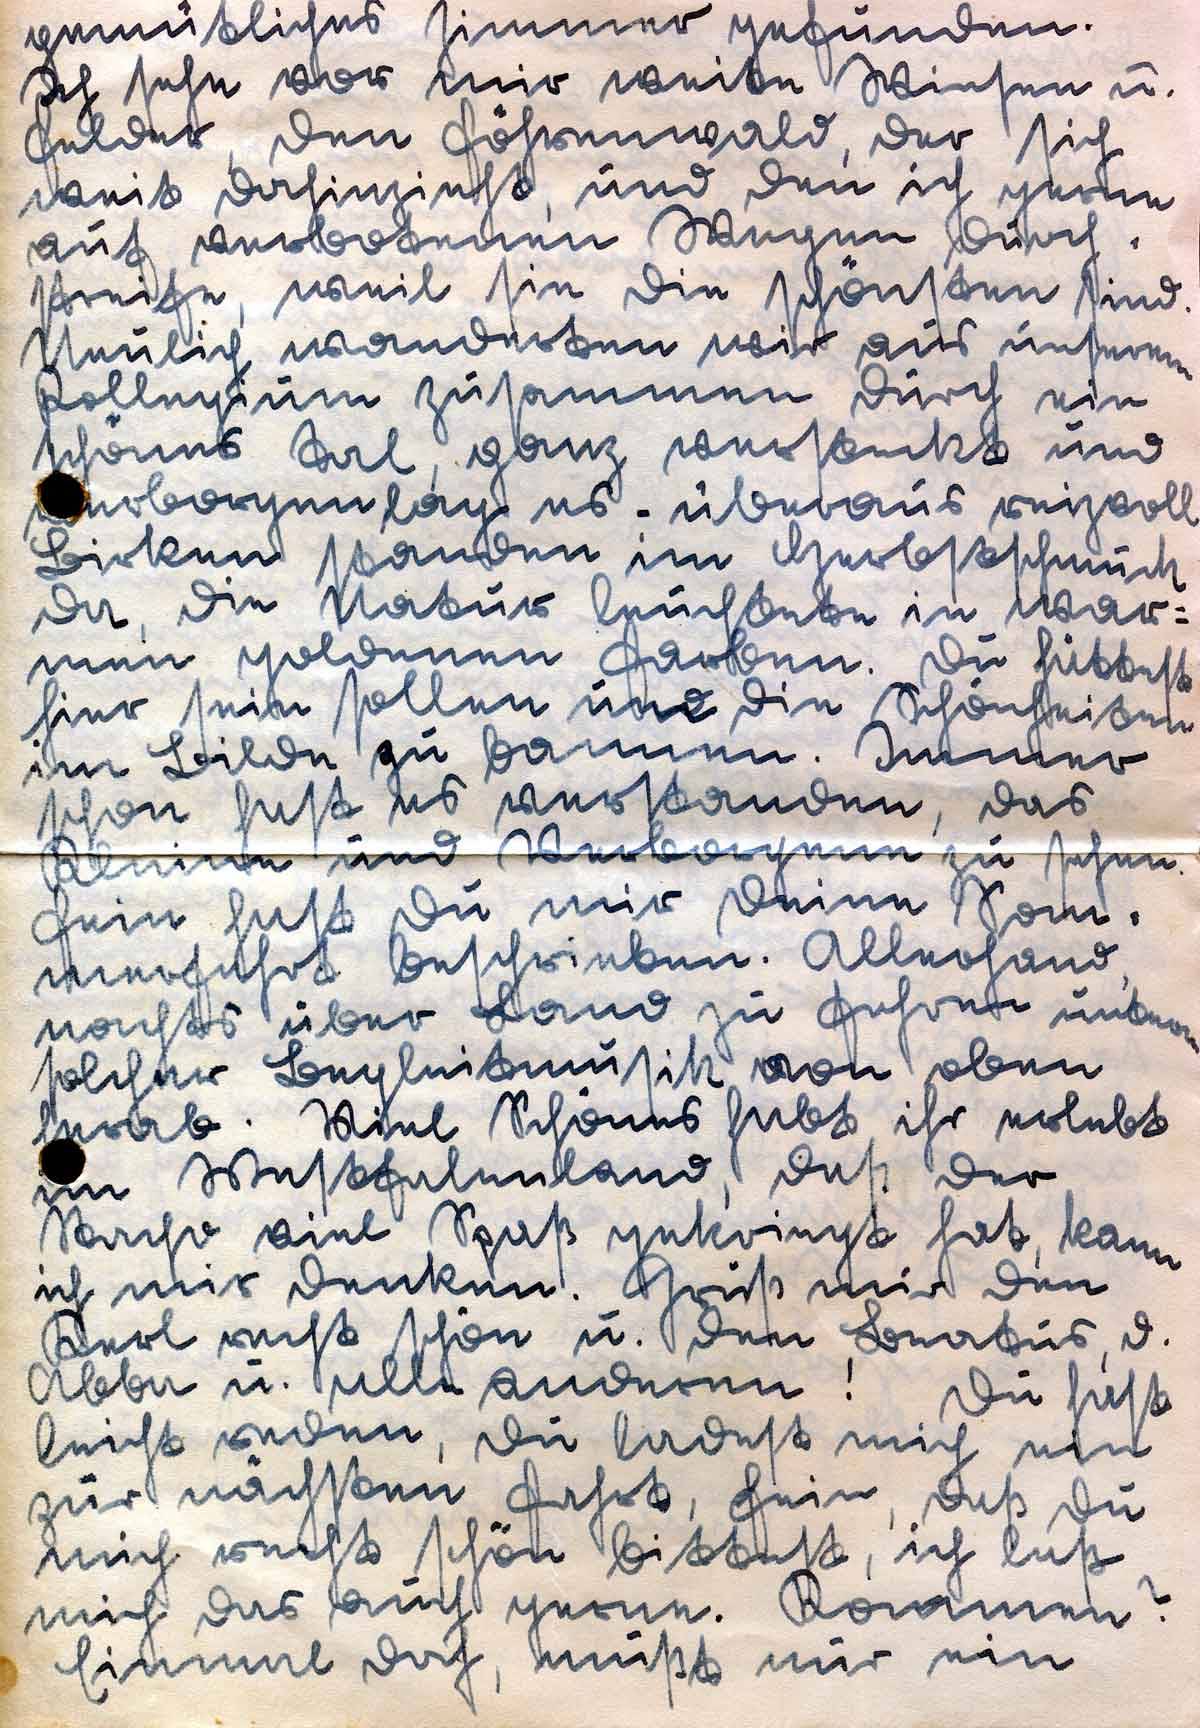 gemütliches Zimmer gefunden.
Ich sehe vor mir weite Wiesen u.
Felder, den Föhrenwald, der sich
weit dahinzieht, und den ich gerne
auf verbotenen Wegen durch-
streife, weil sie die schönsten sind.
Neulich wanderten wir aus unserem
Kollegium zusammen durch ein
schönes Tal, ganz versteckt und
verborgen lag es - überaus reizvoll
Birken standen im Herbstschmuck
da, die Natur leuchtete in war=
men goldenen Farben. Du hättest
hier sein sollen und die Schönheiten
im Bilde zu bannen. Immer
schon hast es verstanden, das
Kleine und Verborgene zu sehen.
Fein hast Du mir Deine Som-
merfahrt beschrieben. Allerhand,
nachts über Land zu fahren unter
solcher Begleitmusik von oben
herab. Viel Schönes habt ihr erlebt
im Westfalenland, daß der
viel Spaß gekriegt hat, kann
ich mir denken. Grüß mir den
Kerl recht schön u. den Beatus, d.
Abba u. alle anderen! Du hast
leicht reden, Du ladest mich ein
zur nächsten Fahrt, fein, daß Du
mich recht schön bittest, ich laß
mich das auch gerne. Kommen?
Einmal doch, müßt nur ein